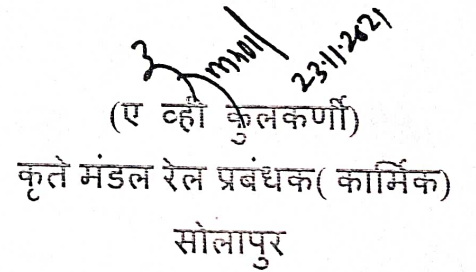 23.11.2021
(ए व्ही कुलकर्णी)
कृते मंडल रेल प्रबंधक( कार्मिक)
सोलापुर